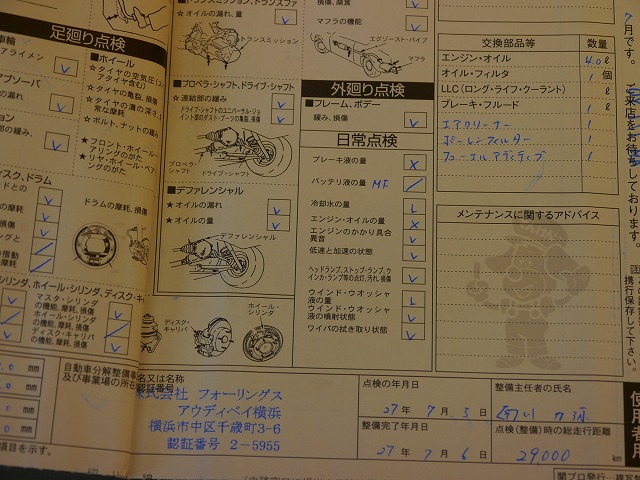 足廻り点検
アライメン
ブソーバ
の漏れ
の緩み、
ィスク、ドラム
ドとの
■ホイール
☆タイヤの空気圧(ス
アタイヤ含む)
★タイヤの亀裂、損傷
★タイヤの溝の深さ
常な摩耗
★ボルト、ナットの緩み
★フロント・ホイール・
アリングのがた
★リヤ・ホイール・ベア
ングのがた
ドラムの摩耗、損傷
シリンダ、ホイール・シリンダ、ディスク・キ
マスタ・シリンダ
の機能、摩耗、損傷
ホイール・シリンダ
の機能、摩耗、損傷
ディスク・キャリパ
の機能、摩耗、損傷
mm
mm
自動車分解整備事
及び事業場の所在
項目を示す。
■トランスミッション、トランスファ
★オイルの漏れ、量
トランスミッション
■プロペラ・シャフト、ドライブ・シャフト
☆連結部の緩み
ドライブ・シャフトのユニバーサル・ジョ
イント部のダスト・ブーツの亀裂、損傷
プロペラ・
シャフト
ドライブ・シャフト
■デファレンシャル
★オイルの漏れ
★オイルの量
デファレンシャル
ディスク・
キャリパ
ホイール・
シリンダ
損傷、腐食
マフラの機能
エグゾースト・パイプ
マフラ
外廻り点検
■フレーム、ボデー
緩み、損傷
日常点検
ブレーキ液の量
バッテリ液の量 MF
冷却水の量
エンジン・オイルの量
エンジンのかかり具合
異音
低速と加速の状態
ヘッドランプ、ストップ・ランプ、ウ
インカ・ランプ等の点灯、汚れ、損傷
ウインド・ウオッシャ
液の量
ウインド・ウオッシャ
液の噴射状態
ワイパの拭き取り状態
交換部品等 数量
エンジン・オイル 4.0ℓ
オイル・フィルタ 1 個
LLC(ロング・ライフ・クーラント) ℓ
ブレーキ・フルード 1 ℓ
エアクリーナー 1
ポーレンフィルター 1
フューエルアディティブ 1
メンテナンスに関するアドバイス
7月です。
ご来店をお待ちしております。
携行保存して下さい。
使用者用
名又は名称
認証番号
株式会社 フォーリングス
アウディベイ横浜
横浜市中区千歳町3-6
認証番号 2-5955
点検の年月日
27年 7月 3日
整備完了年月日
27年 7月 6日
整備主任者の氏名
点検(整備)時の総走行距離
29,000 km